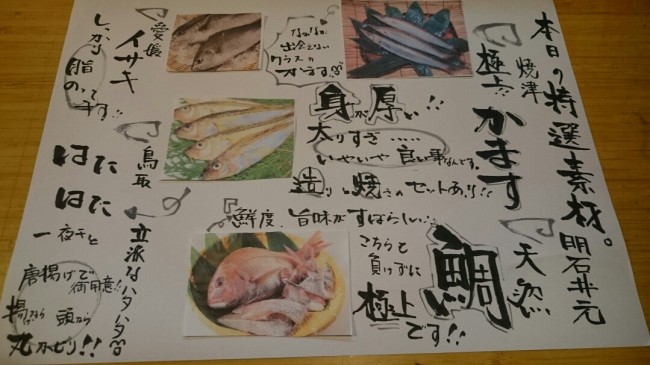 本日の特選素材。
焼津
極上!! かます
なかなか
出会えない
クラスの
かます!!
身が厚い!!
太りすぎ……
いやいや 良い事なんです。
造りと焼きのセットあり!!
明石 井元
天然
鯛
鮮度、旨味がすばらしい!!
こちらも
負けずに
極上
です!!
愛媛
イサキ
しっかり
脂
のって
ます!!
鳥取
はた
はた
立派なハタハタ
一夜干し
唐揚げで
御用意!!
揚げたら 頭から
丸かぶり!!